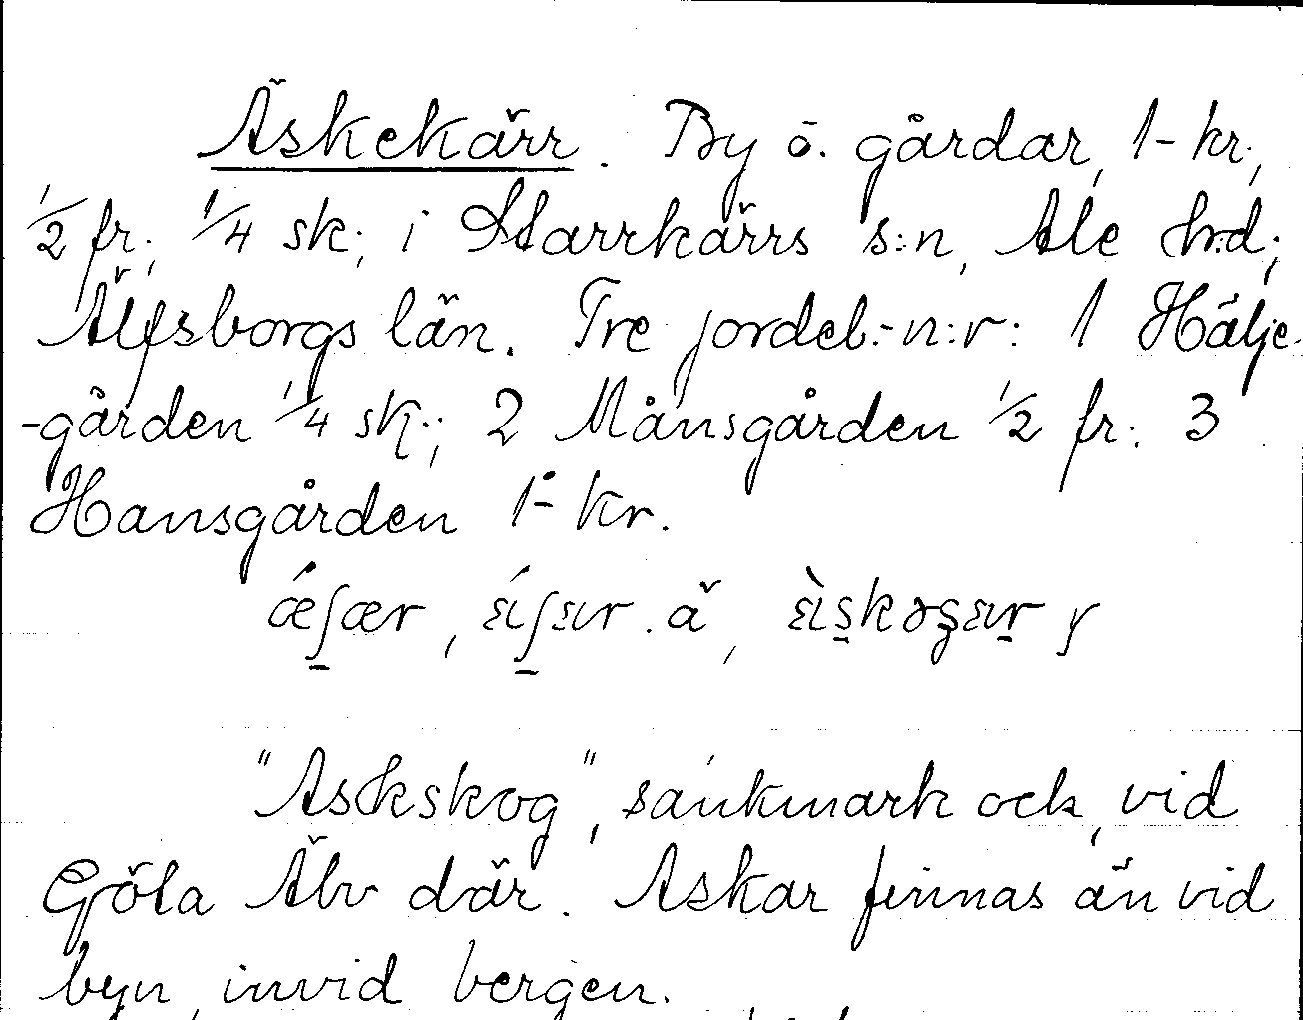 Äskekärr. By ö. gårdar, 1- kr.,
1/2 fr., 1/4 sk., i Starrkärrs s:n, Ale h:d,
Älfsborgs län. Tre jordeb.-n:r: 1 Hälje-
-gården 1/4 sk.; 2 Månsgården 1/2 fr. 3
Hansgården 1- kr.
"Askskog", sankmark ock, vid
Göta Älv där. Askar finnas än vid
byn, invid bergen.